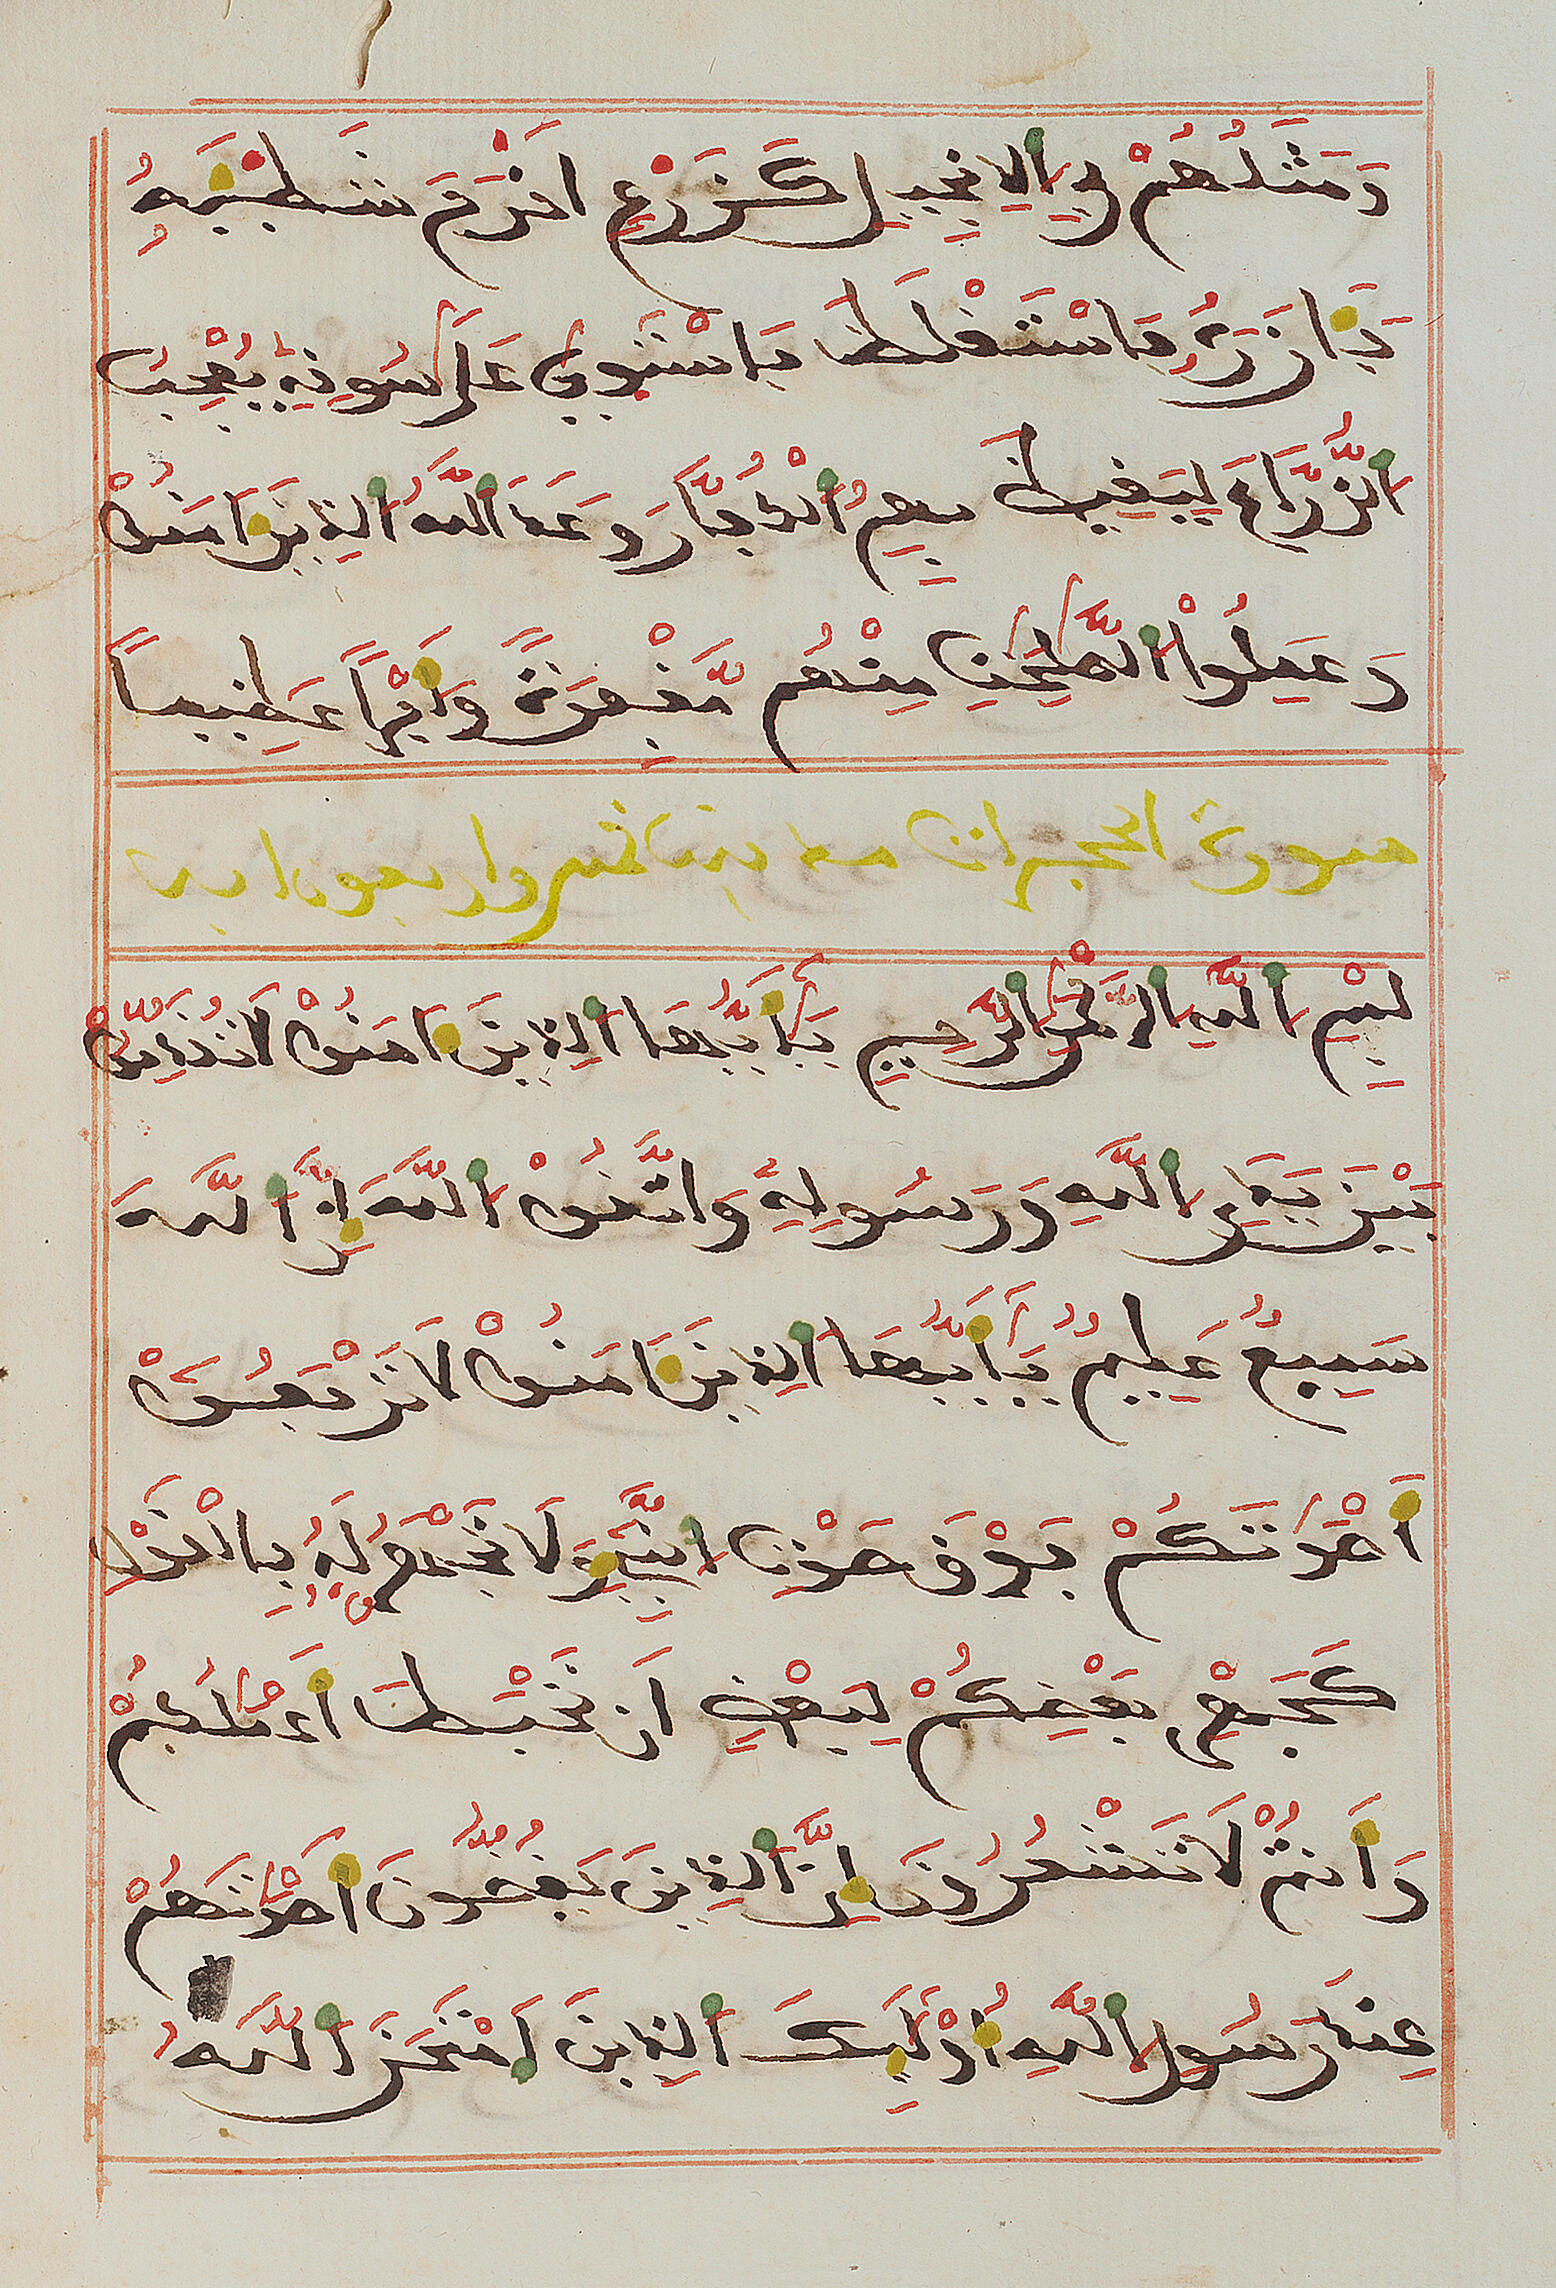 وَمَثَلُهُمْ فِي اِ۬لِانجِيلِ كَزَرْعٍ اَخْرَجَ شَطْـَٔهُۥ
فَـَٔازَرَهُۥ فَاسْتَغْلَظَ فَاسْتَوۭيٰ عَلَيٰ سُوقِهِۦ يُعْجِبُ
اُ۬لزُّرَّاعَ لِيَغِيظَ بِهِمُ اُ۬لْكُفَّارَ وَعَدَ اَ۬للَّهُ اُ۬لذِينَ ءَامَنُواْ
وَعَمِلُواْ اُ۬لصَّٰلِحَٰتِ مِنْهُم مَّغْفِرَةً وَأَجْراً عَظِيماً
سورة الحجرات مدنية ثمان واربعون اية
بِسْمِ اِ۬للَّهِ اِ۬لرَّحْمَٰنِ اِ۬لرَّحِيمِ يَٰٓأَيُّهَا اَ۬لذِينَ ءَامَنُواْ لَا تُقَدِّمُواْ
بَيْنَ يَدَيِ اِ۬للَّهِ وَرَسُولِهِۦ وَاتَّقُواْ اُ۬للَّهَ إِنَّ اَ۬للَّهَ
سَمِيعٌ عَلِيمٌ يَٰٓأَيُّهَا اَ۬لذِينَ ءَامَنُواْ لَا تَرْفَعُواْ
أَصْوَٰتَكُمْ فَوْقَ صَوْتِ اِ۬لنَّبِيٓءِ وَلَا تَجْهَرُواْ لَهُۥ بِالْقَوْلِ
كَجَهْرِ بَعْضِكُمْ لِبَعْضٍ اَن تَحْبَطَ أَعْمَٰلُكُمْ
وَأَنتُمْ لَا تَشْعُرُونَ إِنَّ اَ۬لذِينَ يَغُضُّونَ أَصْوَٰتَهُمْ
عِندَ رَسُولِ اِ۬للَّهِ أُوْلَٰٓئِكَ اَ۬لذِينَ اَ۪مْتَحَنَ اَ۬للَّهُ